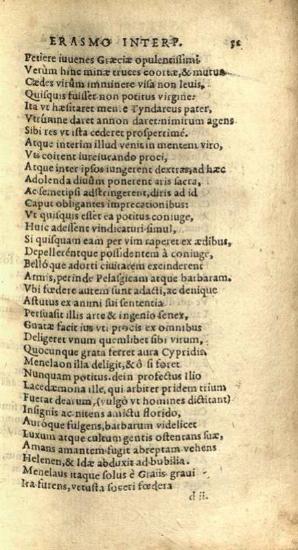 ERASMO INTERP. 32
Petiere iuuenes Græciæ opulentissimi
Verùm hinc minæ truces coortæ, & mutua
Cædes virûm imminere visa non leuis,
Quisquis fuisset non potitus virgine.
Ita vt hæsitaret mente Tyndareus pater,
Vtrumne daret an non daret: nimirum agens
Sibi res vt ista cederet prosperrimè.
Atque interim illud venit in mentem viro,
Vti coirent iureiurando proci,
Atque inter ipsos iungerent dextras, ad hæc
Adolenda diuûm ponerent aris sacra,
Ac semetipsi adstringerent, diris ad id
Caput obligantes imprecationibus:
Vt quisquis esset ea potitus coniuge,
Huic adessent vindicaturi simul,
Si quisquam eam per vim caperet ex ædibus,
Depellerentque possidentem à coniuge,
Bellóque adorti ciuitatem exscinderent
Armis, perinde Pelasgicam atque barbaram.
Vbi fœdere autem sunt adacti, ac denique
Astutus ex animi sui sententia
Persuasit illis arte & ingenio senex,
Gnatæ facit ius vti procis ex omnibus
Deligeret vnum quemlibet sibi virum,
Quocunque grata ferret aura Cypridis.
Menelaon illa deligit, & ô si foret
Nunquam potitus. dein profectus Ilio
Lacedæmona ille, qui arbiter pridem trium
Fuerat dearum, (vulgò vt homines dictitant)
Insignis ac nitens amictu florido,
Auróque fulgens, barbarum videlicet
Luxum atque cultum gentis ostentans suæ,
Amans amantem fugit abreptam vehens
Helenen, & Idæ abduxit ad bubilia.
Menelaus itaque solus è Graiis graui
Ira furens, vetusta soceri fœdera
d ii.